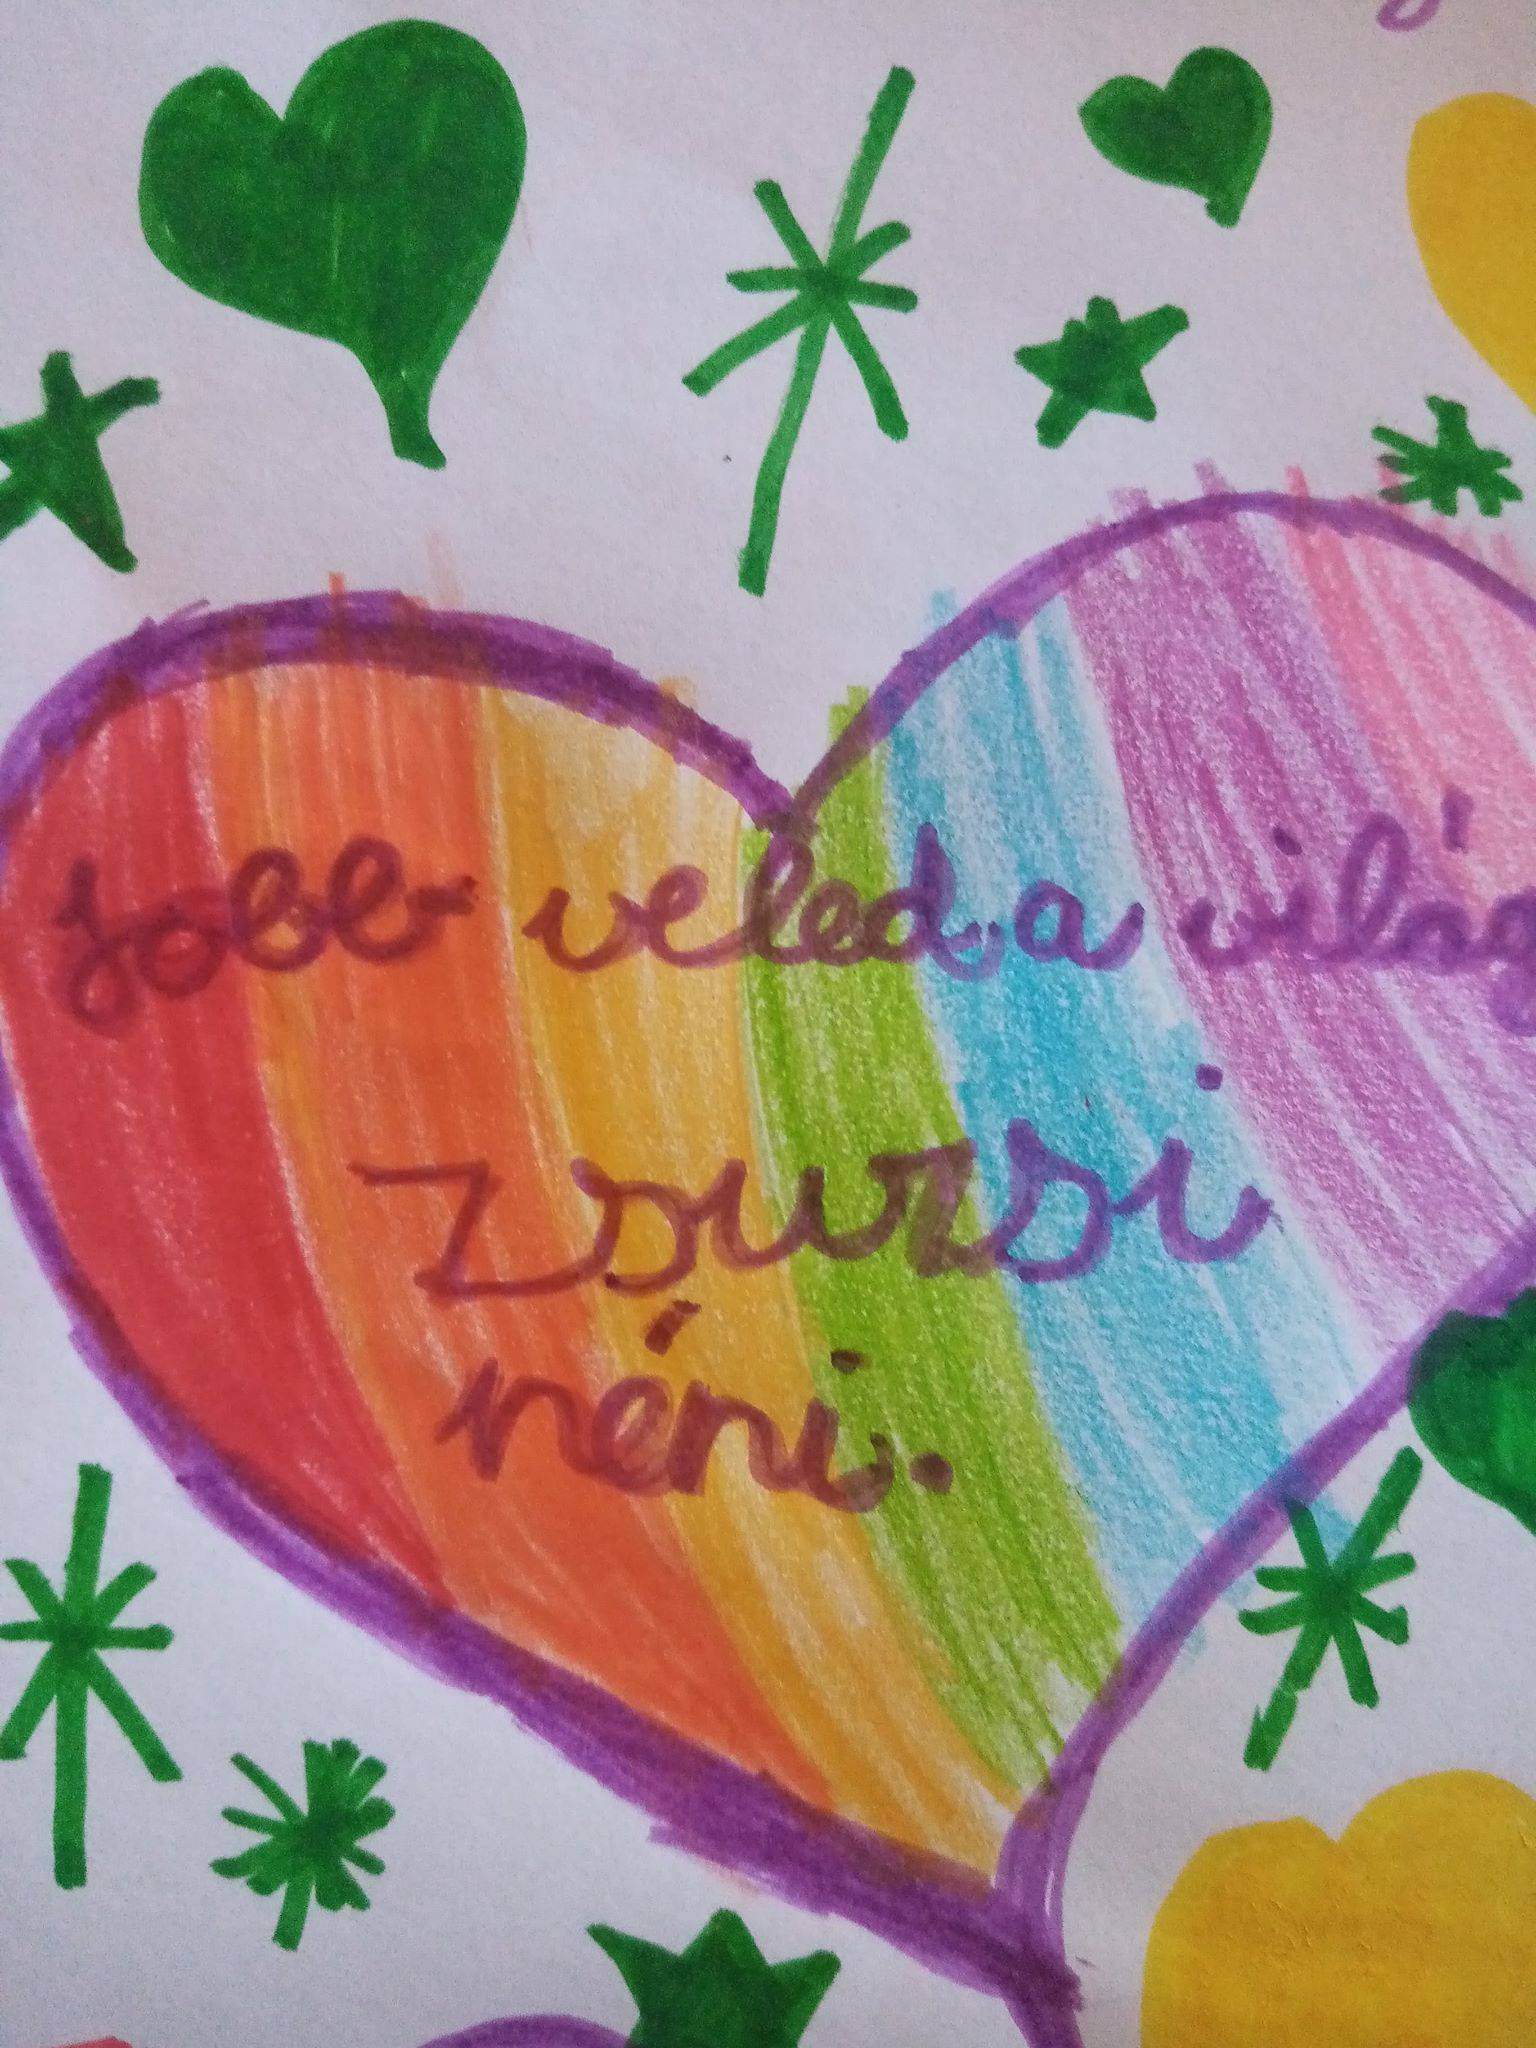 Jobb veled a világ
Zsurzsi
néni.